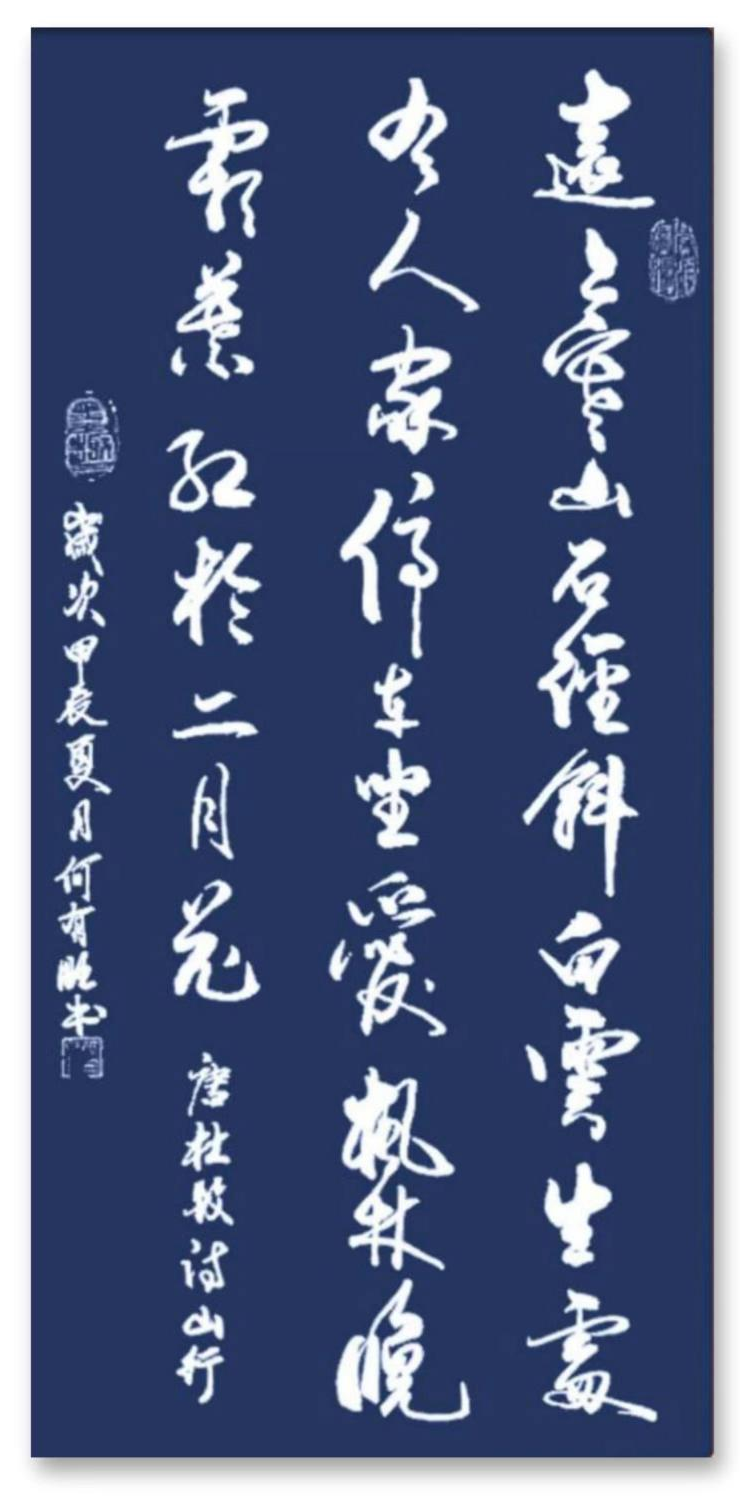 遠上寒山石徑斜白雲生處
有人家停車坐愛楓林晚
霜葉紅於二月花 唐杜牧詩山行
歲次甲辰夏月何有书